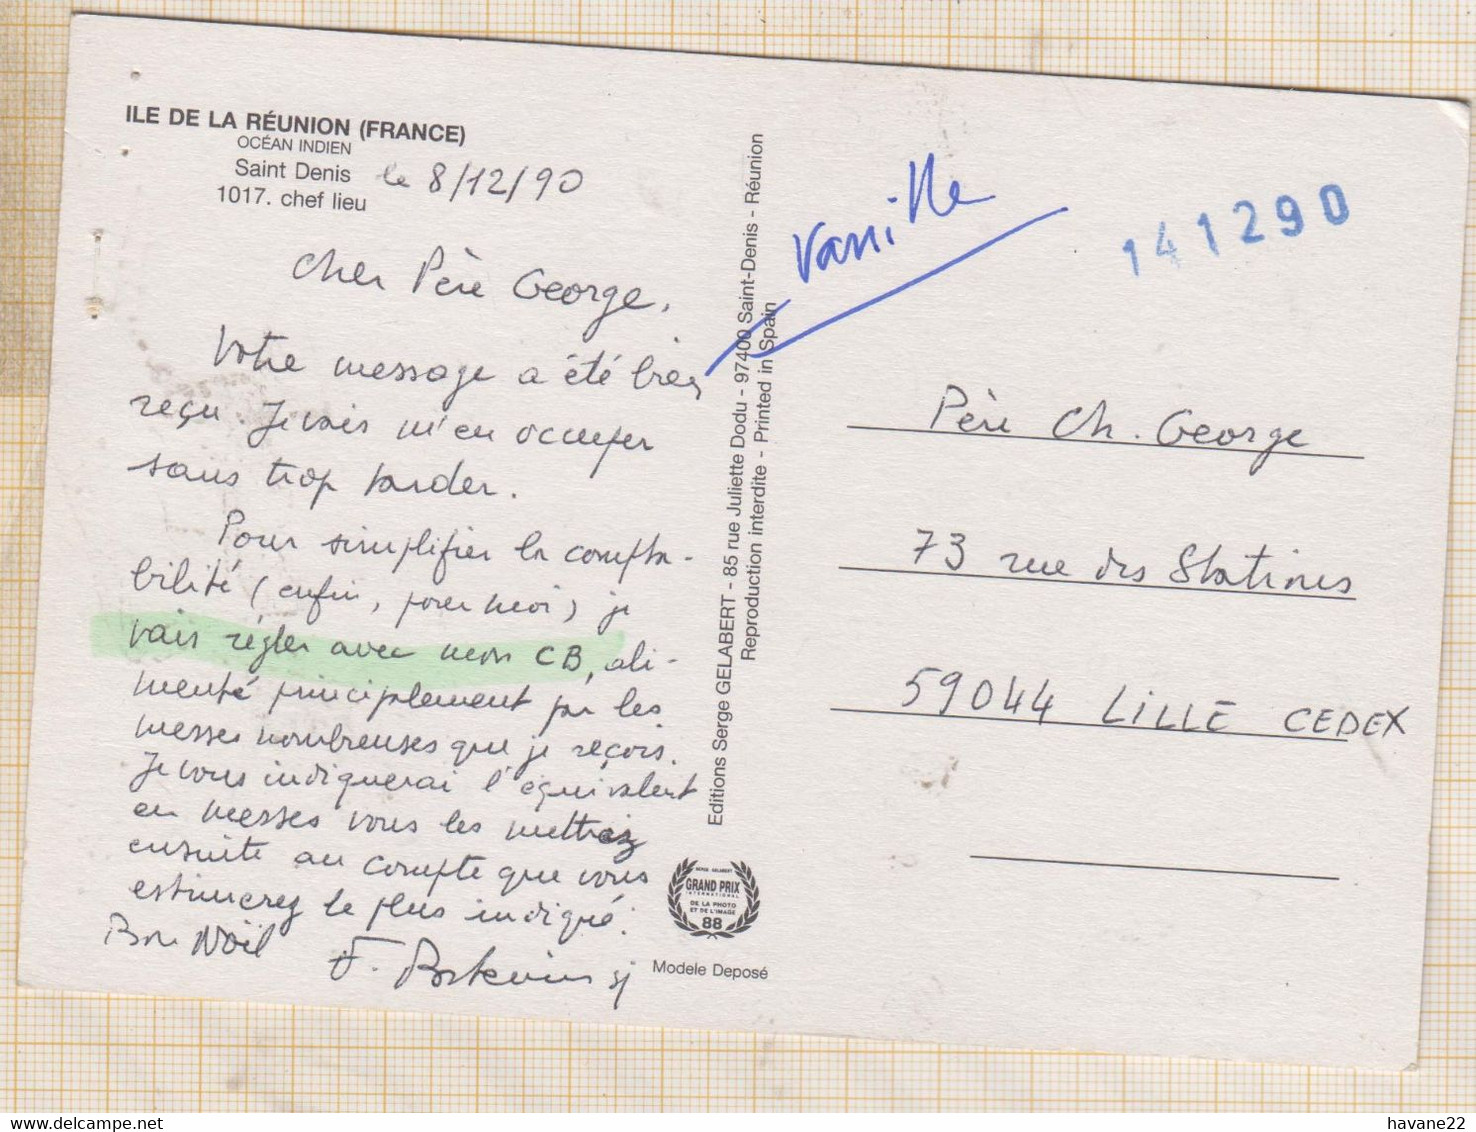 ILE DE LA RÉUNION (FRANCE)
OCÉAN INDIEN
Saint Denis
1017. chef lieu
le 8/12/90
Cher Père George,
Votre message a été bien
reçu. Je vais m'en occuper
sans trop tarder.
Pour simplifier la compta-
bilité (enfin, pour moi) je
vais régler avec mon CB, ali-
menté principalement par les
messes nombreuses que je reçois.
Je vous indiquerai l'équivalent
en messes vous les mettrez
ensuite au compte que vous
estimerez le plus indiqué.
Bon Noël
F. sj
Editions Serge GELABERT - 85 rue Juliette Dodu - 97400 Saint-Denis - Réunion
Reproduction interdite - Printed in Spain
SERGE GELABERT
GRAND PRIX
INTERNATIONAL
DE LA PHOTO
ET DE L'IMAGE
88
Modele Deposé
Vanille
141290
Père Ch. George
73 rue des Stations
59044 LILLE CEDEX
havane22